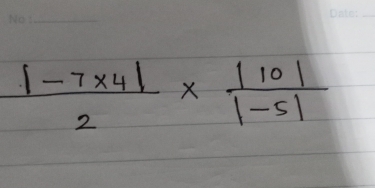 No :
Date:
|-7×4| / 2 × |10| / |-5|